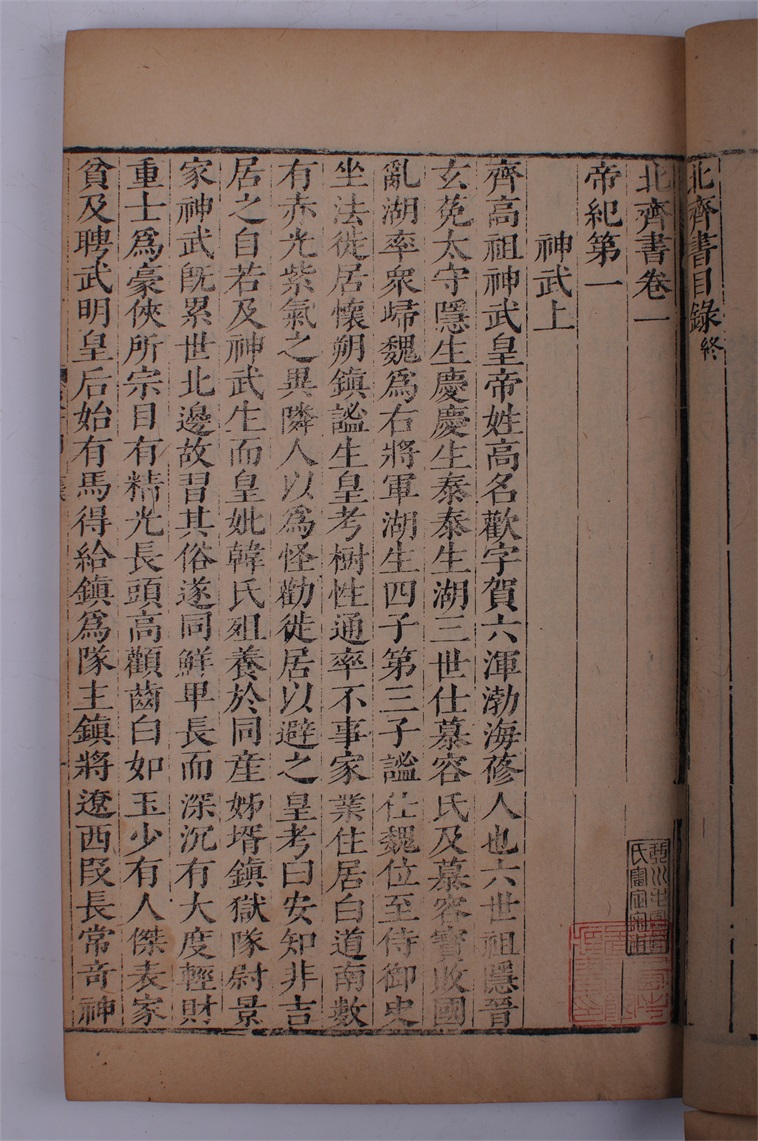 北齊書目錄終
北齊書卷一
帝紀第一
神武上
齊高祖神武皇帝姓高名歡字賀六渾渤海蓚人也六世祖隱晉
玄菟太守隱生慶慶生泰泰生湖三世仕慕容氏及慕容寶敗國
亂湖率衆歸魏爲右將軍湖生四子第三子謐仕魏位至侍御史
坐法徙居懷朔鎮謐生皇考樹性通率不事家業住居白道南數
有赤光紫氣之異隣人以爲怪勸徙居以避之皇考曰安知非吉
居之自若及神武生而皇妣韓氏殂養於同産姊壻鎮獄隊尉景
家神武旣累世北邊故習其俗遂同鮮卑長而深沉有大度輕財
重士爲豪俠所宗目有精光長頭高顴齒白如玉少有人傑表家
貧及聘武明皇后始有馬得給鎮爲隊主鎮將遼西段長常奇神